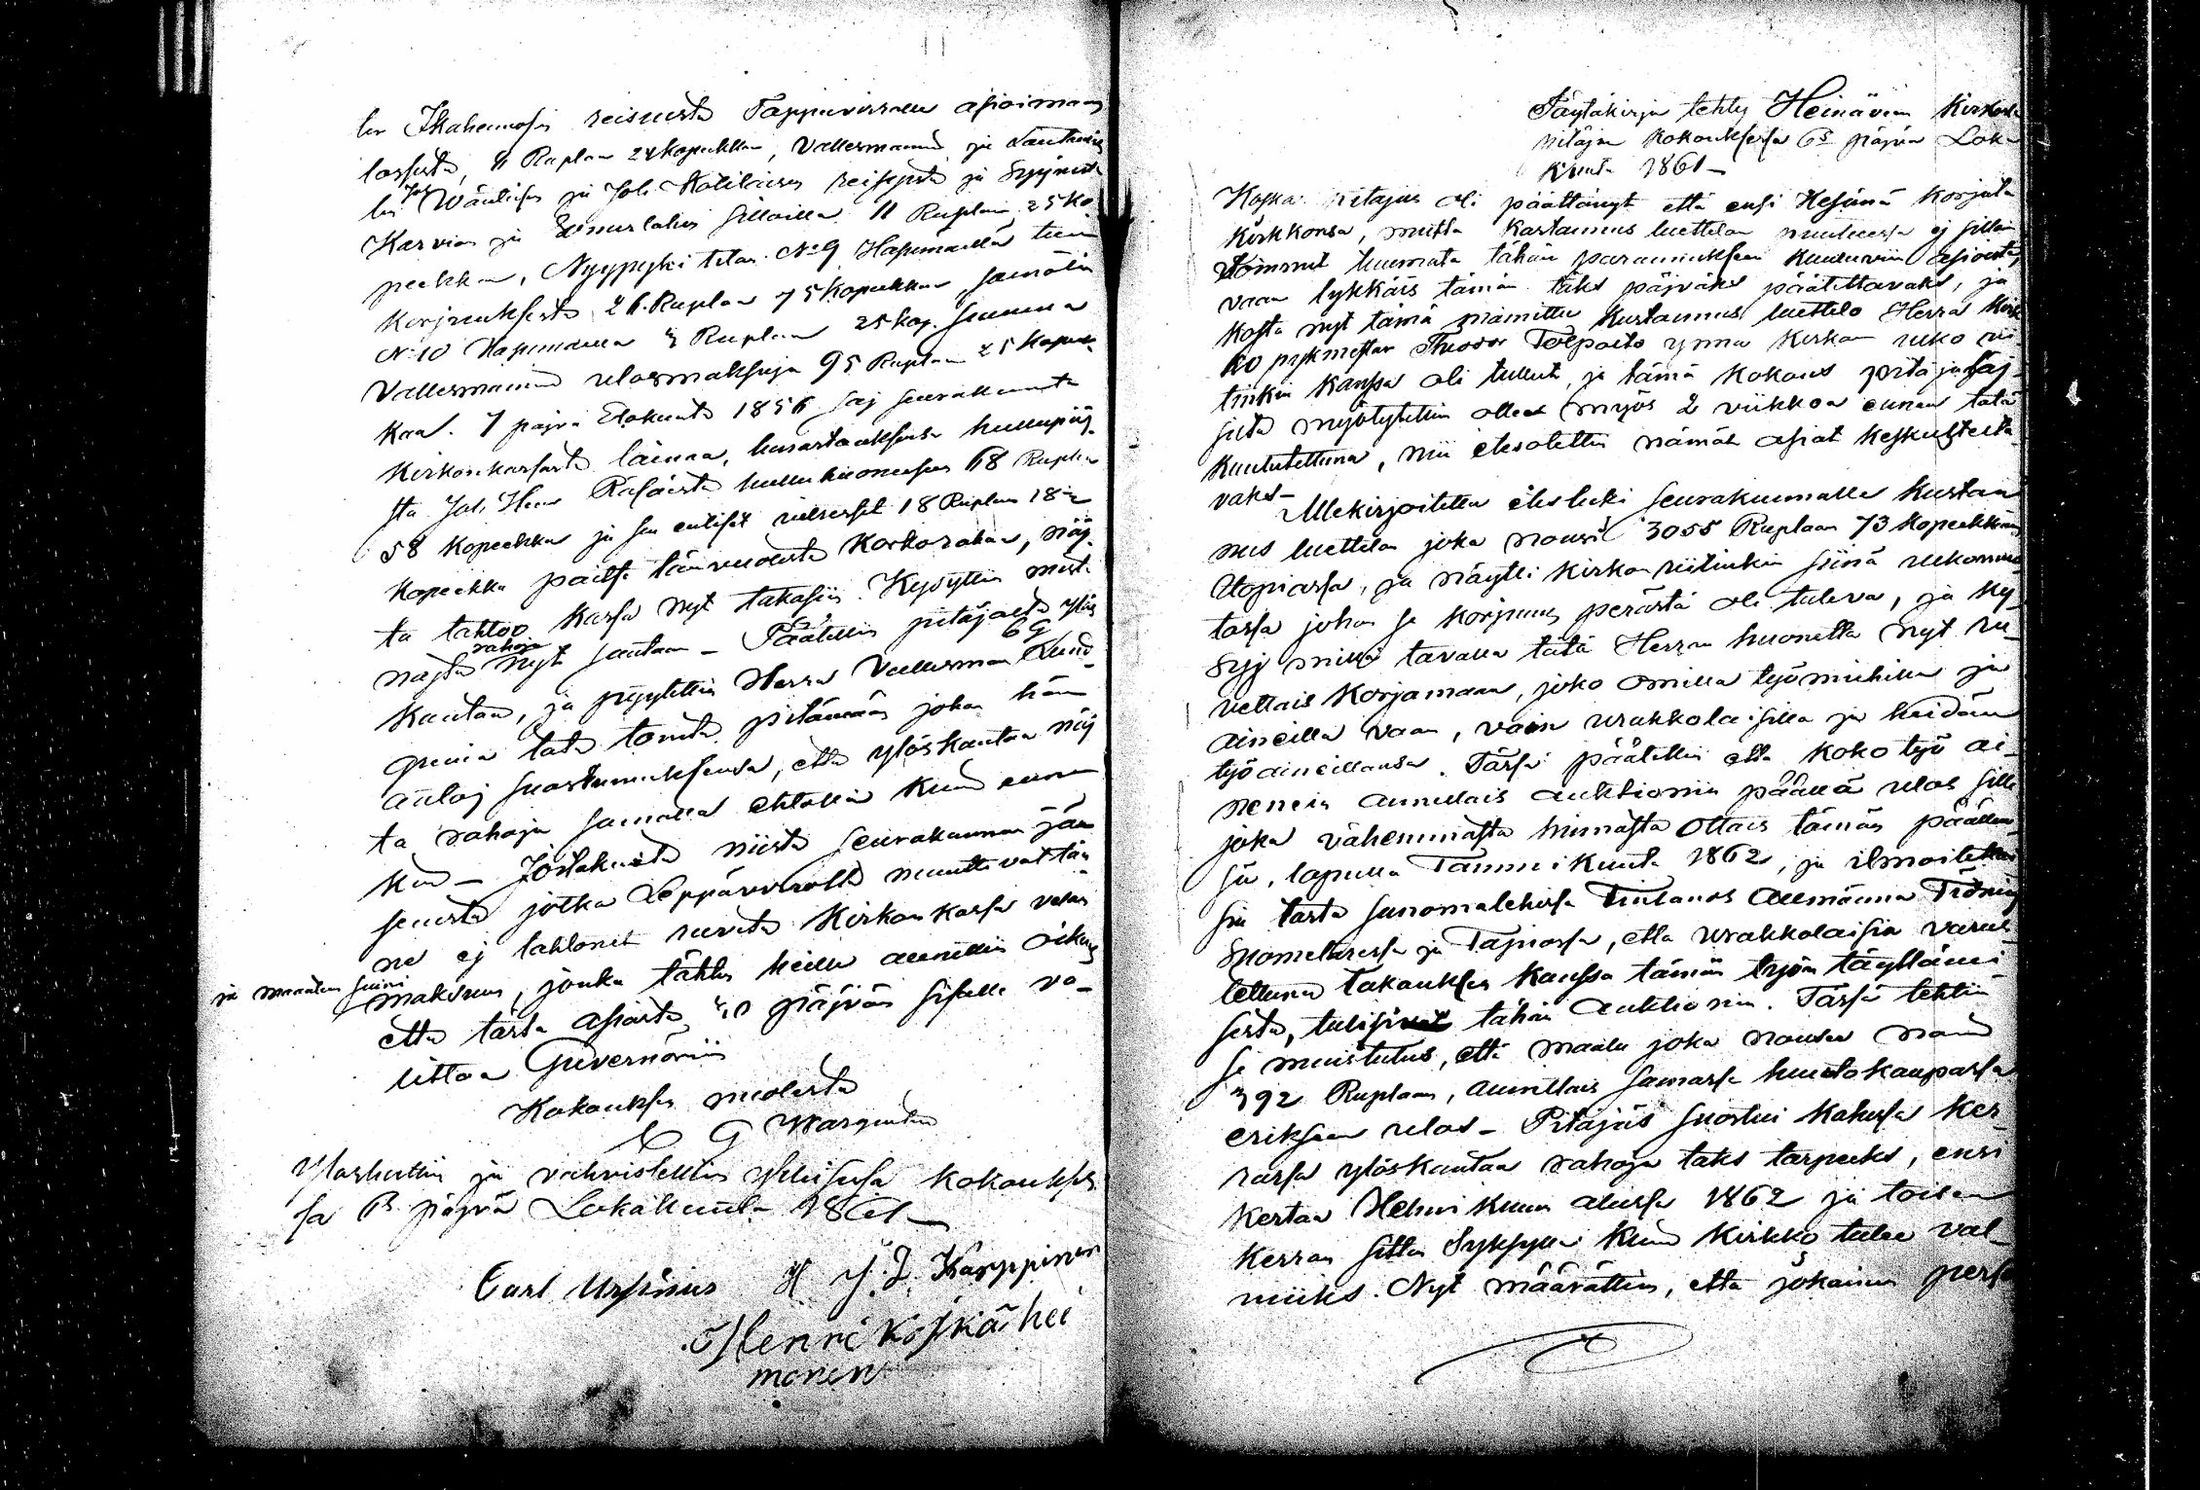 Ikaheimosen reisusta Tappuvirralle asioimaan
11 Ruplan 24 kopekkan, Vallesmannin ja Lautamie
Wänäisen ja Joh. Kotilaisen reisusta ja Syynistä
Karvion ja sillailla 11 Ruplan 25 ko
peekkan, Nyypyyki tilan No 9 Hasumäellä
Korjauksesta 26 Ruplan 75 Kopekkan, samoten
No 10 Hasumäellä 4 Ruplan 25 kop. Summa
Vallesmannin ulosmaksuja 95 Ruplan 25 kopek
kaa. 7 päjvä Elokuuta 1856 saj seurakunta
Kirkonkassasta lainaa, hulluhuoneesen
sta Joh. Räsäsestä hulluhuoneesen 68 Ruplan
58 Kopeekkaa ja sen entiset 18 Ruplan 18
kopeekka paitse korkorahaa, näj
tä tahtoo Kassa nyt takasiin. Kysyttiin mistä
näjtä rahoja nyt saataan – Päätettiin pitäjältä ylös
kantaa, ja pyydettiin Herra Vallesman Lind
qvist tätä tointa pitämään johon hän
antoj suostumuksensa, että ylöskantaa näj
tä rahoja samalla ehdolla kuin ennen
kin – Joistakuista niistä seurakunnan jäse
senistä jotka Leppävirralle muuttivat tän
ne ej tahtonet ruveta Kirkon kassa velan
ja maantien
maksuun, jonka tähden heille annettiin oikeus
että tästä asiasta 30 päjvän sisälle va
littaa Guvernöriin
Kokouksen puolesta
C G Wargentin
Ylösluettiin ja vahvistettiin yhteisessä kokoukses
sa 13 päjvä Lokakuuta 1861 –
Carl Ursinus H J. J. Karppinen
Henrik ojkäihei
monen
Pöytäkirja tehty Heinäveden Kirkon
pitäjän kokouksessa 6s päjvä Loka
kuuta 1861 –
Koska pitäjäs oli päättänyt että ensi Kesänä korjata
Kirkkonsa, mutta Kustannus luettelon puutteesta ej sillon
vojnnut tuumata tähän parannukseen kuuluviin asioista,
vaan lykkäis tämän täks päjväks päätettäväks, ja
koska nyt tämä mainittu Kustannus luettelo Herra Kirk
ko pykmestar Theodor Tolpoilta ynnä Kirkon uuko rii
tinkin kanssa oli tullut, ja tämä kokous pitäjäsläj
sistä myödytettiin olleen myös 2 viikkoa ennen tätä
kuulutettuna, nii etesotettiin nämät asiat keskuteltu
vaks –
Allekirjoitettu etesluki seurakunnalle kustan
nus luettelon joka nousi 3055 Ruplaan 73 Kopeekkaan
Hopiassa, ja näytti kirkon riitinkin siinä
tossa johon se korjuun perästä oli tuleva, ja ky
syj millä tavalla tätä Herran huonetta nyt ru
vettais Korjamaan, joko omilla työmiehillä ja
aineilla vaan, vain urakkolaisilla ja heidän
työaineillansa. Tässä päätettiin että koko työ ai
neneen annettais auktionin päällä ulos sille
joka vähemmästä hinnasta ottais tämän päällen
sä, lopulla Tammikuuta 1862, ja ilmoitettiin
sin tästä sanomalehissä Finlands Allmänna Tidning
Suomettaressa ja Tapiossa, että urakkolaisia varus
tettuna takauksen kanssa tämän työn täyttämi
sestä, tulisivat tähän auktionin. Tässä tehtiin
se muistutus, että maalu joka nousee noin
392 Ruplaan, annettais samassa huutokaupassa
eriksen ulos – Pitäjäs suostui kahessa ker
rassa ylöskantaa rahoja täks tarpeeks, ensi
kertaa Helmikuun alussa 1862 ja toisen
kerran sitten Syksyllä kuin kirkko tulee val
miiks. Nyt määrättiin, että jokainen perse